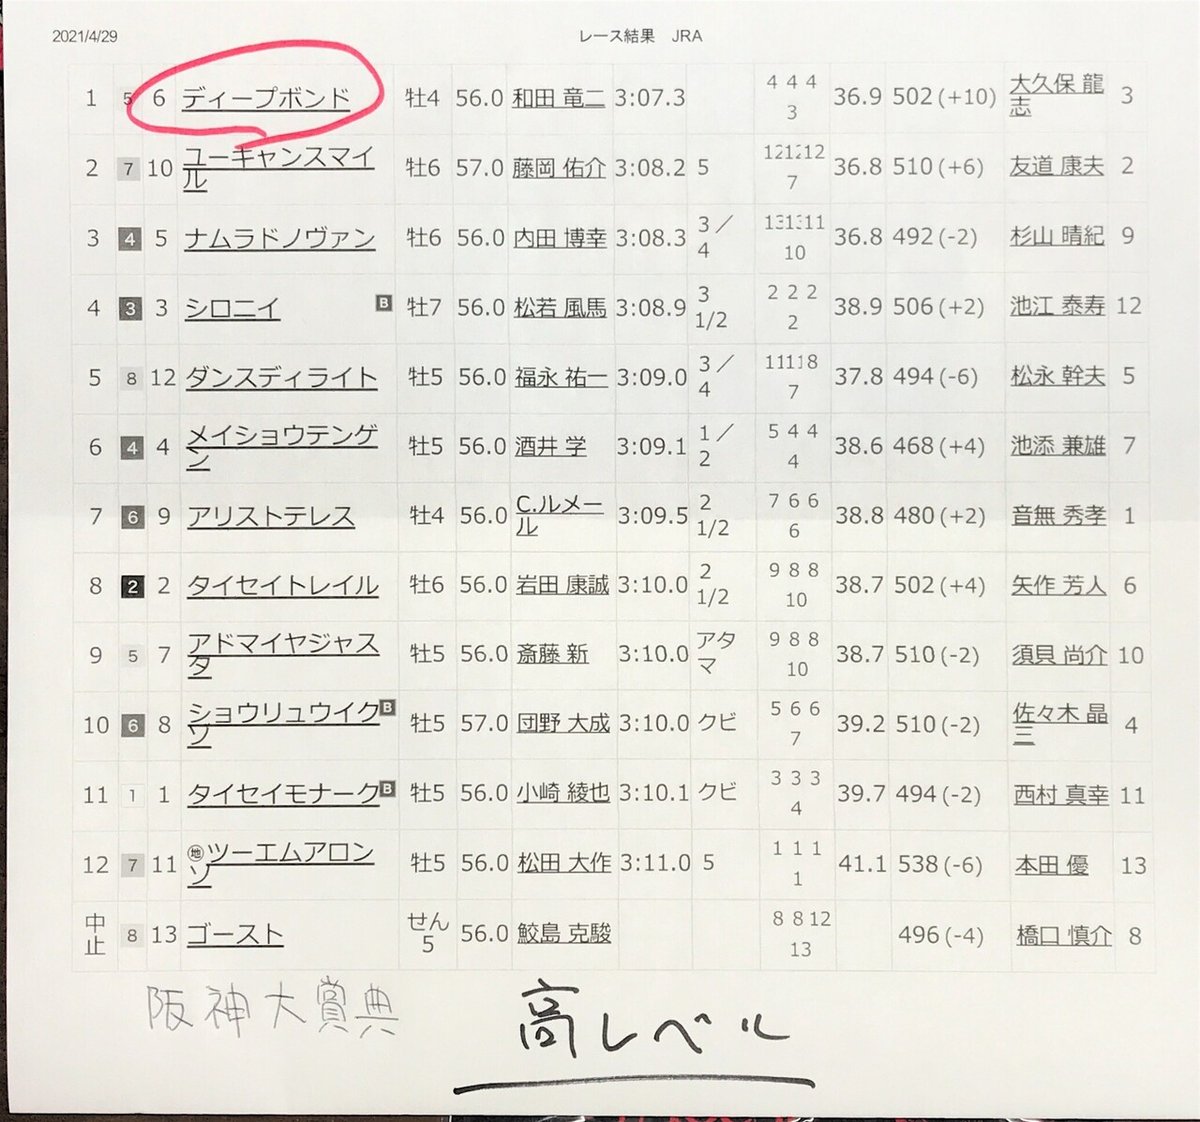 2021/4/29 レース結果 JRA
1 5 6 ディープボンド 牡4 56.0 和田 竜二 3:07.3 4 4 4 3 36.9 502 (+10) 大久保 龍志 3
2 7 10 ユーキャンスマイル 牡6 57.0 藤岡 佑介 3:08.2 5 12 12 12 7 36.8 510 (+6) 友道 康夫 2
3 4 5 ナムラドノヴァン 牡6 56.0 内田 博幸 3:08.3 3/4 13 13 11 10 36.8 492 (-2) 杉山 晴紀 9
4 3 3 シロニイ B 牡7 56.0 松若 風馬 3:08.9 3 1/2 2 2 2 2 38.9 506 (+2) 池江 泰寿 12
5 8 12 ダンスディライト 牡5 56.0 福永 祐一 3:09.0 3/4 11 11 8 7 37.8 494 (-6) 松永 幹夫 5
6 4 4 メイショウテンゲン 牡5 56.0 酒井 学 3:09.1 1/2 5 4 4 4 38.6 468 (+4) 池添 兼雄 7
7 6 9 アリストテレス 牡4 56.0 C.ルメール 3:09.5 2 1/2 7 6 6 6 38.8 480 (+2) 音無 秀孝 1
8 2 2 タイセイトレイル 牡6 56.0 岩田 康誠 3:10.0 2 1/2 9 8 8 10 38.7 502 (+4) 矢作 芳人 6
9 5 7 アドマイヤジャスタ 牡5 56.0 斎藤 新 3:10.0 アタマ 9 8 8 10 38.7 510 (-2) 須貝 尚介 10
10 6 8 ショウリュウイクゾ B 牡5 57.0 団野 大成 3:10.0 クビ 5 6 6 7 39.2 510 (-2) 佐々木 晶三 4
11 1 1 タイセイモナーク B 牡5 56.0 小崎 綾也 3:10.1 クビ 3 3 3 4 39.7 494 (-2) 西村 真幸 11
12 7 11 地 ツーエムアロンソ 牡5 56.0 松田 大作 3:11.0 5 1 1 1 1 41.1 538 (-6) 本田 優 13
中止 8 13 ゴースト せん5 56.0 鮫島 克駿 8 8 12 13 496 (-4) 橋口 慎介 8
阪神大賞典 高レベル